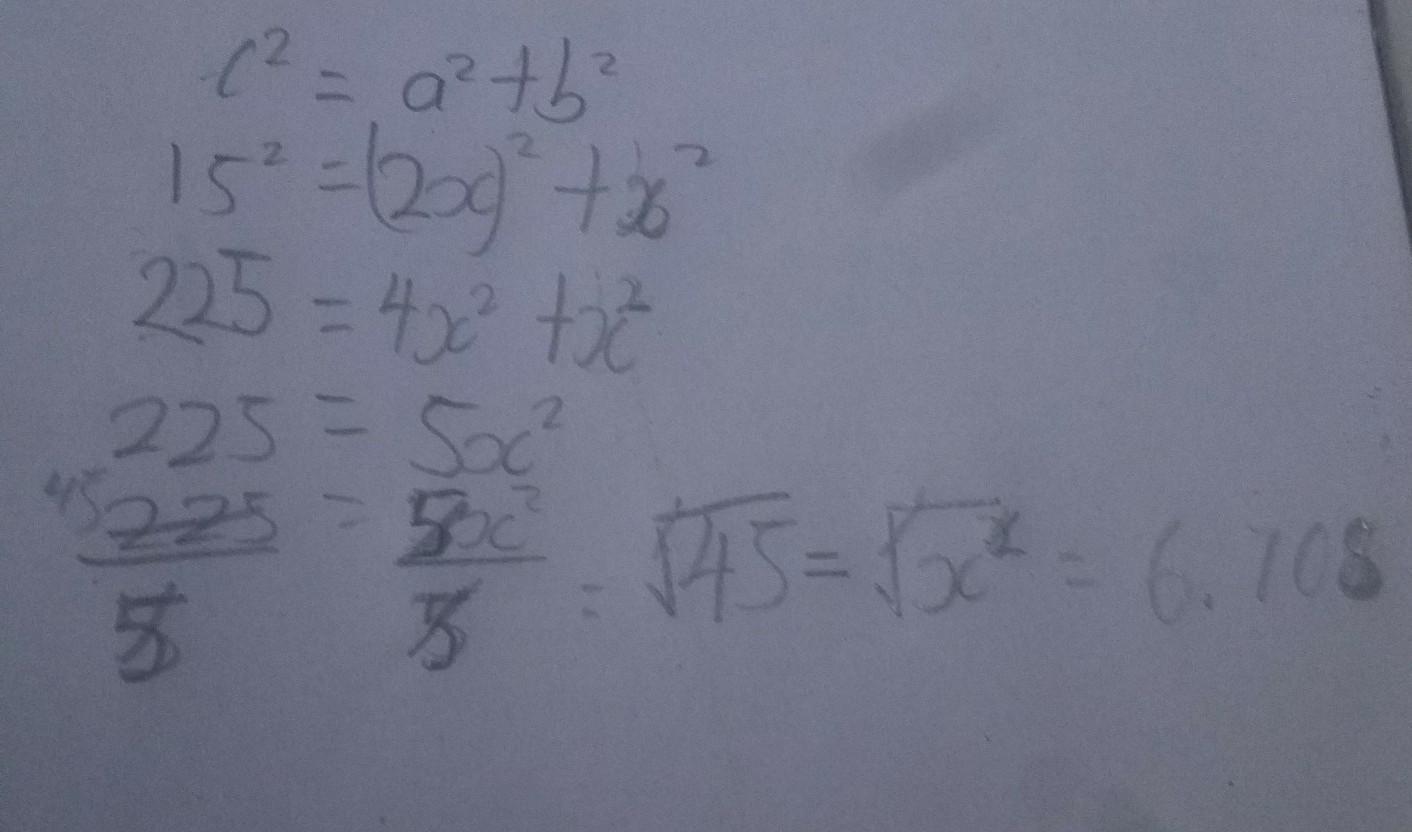 c² = a² + b²
15² = (2x)² + x²
225 = 4x² + x²
225 = 5x²
45 225/5 = 5x²/5 = √45 = √x² = 6.708